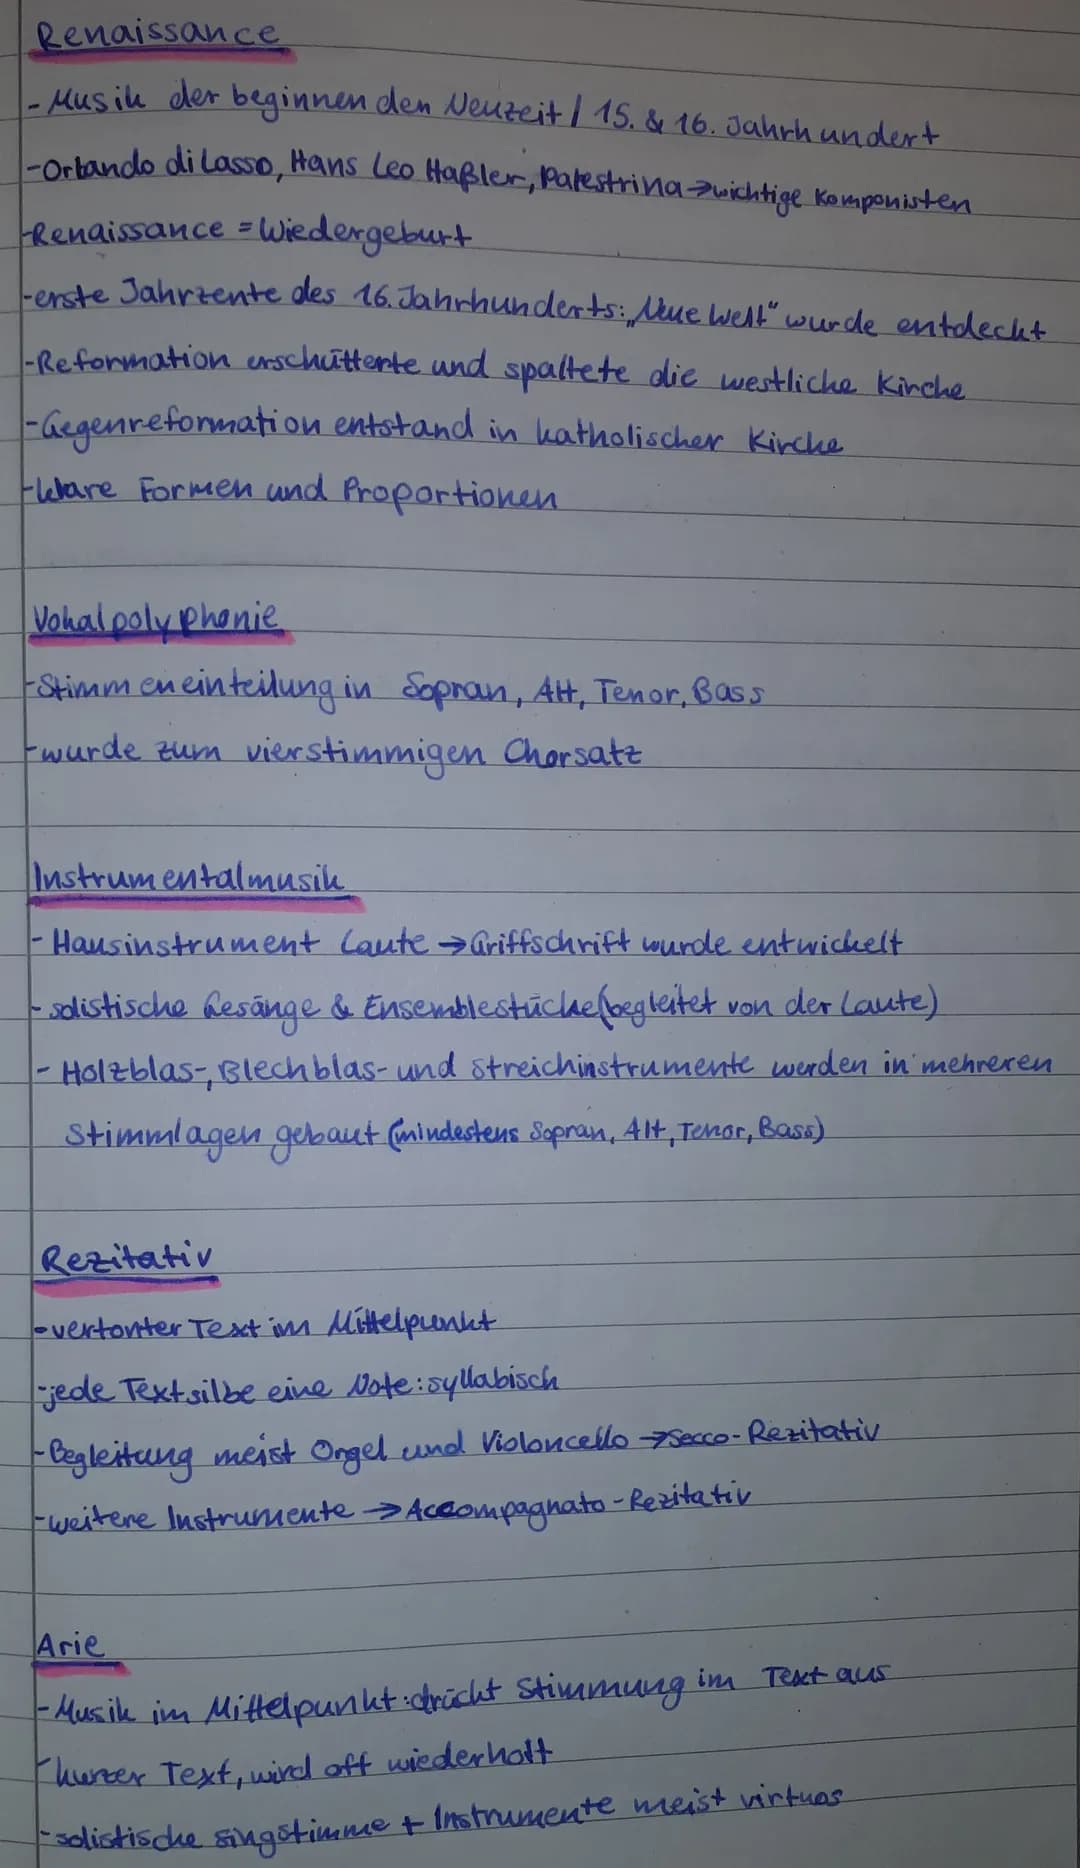 Renaissance
- Musik der beginnenden Neuzeit / 15. & 16. Jahrhundert
- Orlando di Lasso, Hans Leo Haßler, Palestrina → wichtige Komponisten
- Renaissance = Wiedergeburt
- erste Jahrzente des 16. Jahrhunderts: „Neue Welt" wurde entdeckt
- Reformation erschütterte und spaltete die westliche Kirche
- Gegenreformation entstand in katholischer Kirche
- klare Formen und Proportionen
Vokalpolyphonie
- Stimmeneinteilung in Sopran, Alt, Tenor, Bass
- wurde zum vierstimmigen Chorsatz
Instrumentalmusik
- Hausinstrument Laute → Griffschrift wurde entwickelt
- solistische Gesänge & Ensemblestücke (begleitet von der Laute)
- Holzblas-, Blechblas- und Streichinstrumente werden in mehreren
Stimmlagen gebaut (mindestens Sopran, Alt, Tenor, Bass)
Rezitativ
- vertonter Text im Mittelpunkt
- jede Textsilbe eine Note: syllabisch
- Begleitung meist Orgel und Violoncello → Secco-Rezitativ
- weitere Instrumente → Accompagnato-Rezitativ
Arie
- Musik im Mittelpunkt: drückt Stimmung im Text aus
- kurzer Text, wird oft wiederholt
- solistische Singstimme + Instrumente meist virtuos